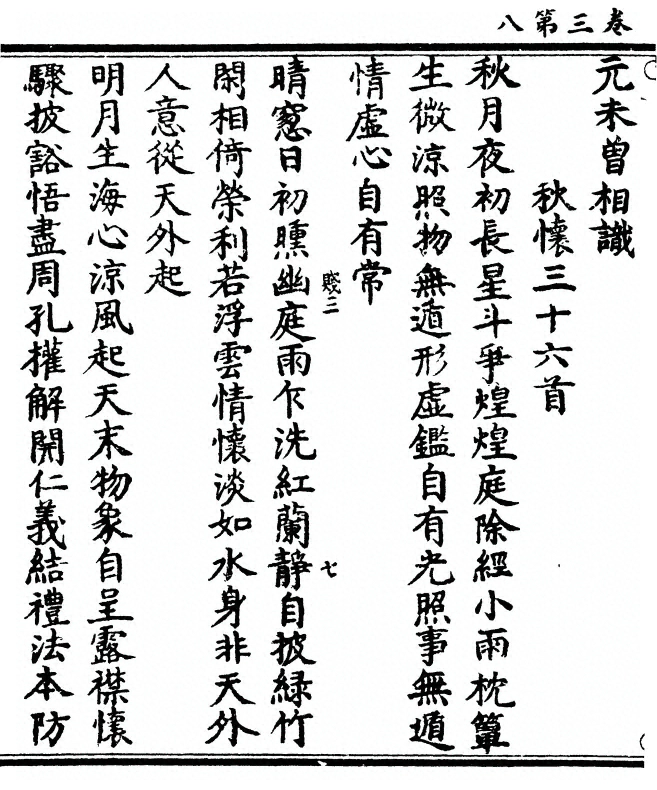 八第三卷
元未曾相識
秋懷三十六首
秋月夜初長星斗爭煌煌庭除經小雨枕簟
生微涼照物無遁形虛鑑自有光照事無遁
情虛心自有常
賤三
七
晴窻日初曛幽庭雨乍洗紅蘭靜自披緑竹
閑相倚榮利若浮雲情懷淡如水身非天外
人意從天外起
明月生海心涼風起天末物象自呈露襟懷
驟披豁悟盡周孔權解開仁義結禮法本防